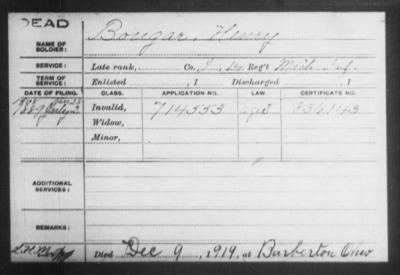 DEAD
NAME OF SOLDIER: Bougar, Henry
SERVICE: Late rank, Co. I, 14 Reg't Mich. Inf.
TERM OF SERVICE: Enlisted , 1 Discharged , 1
DATE OF FILING. CLASS. APPLICATION NO. LAW. CERTIFICATE NO.
1889 Invalid, 714553 834143
Widow,
Minor,
ADDITIONAL SERVICES:
REMARKS:
Died Dec 9, 1919, at Barberton Ohio